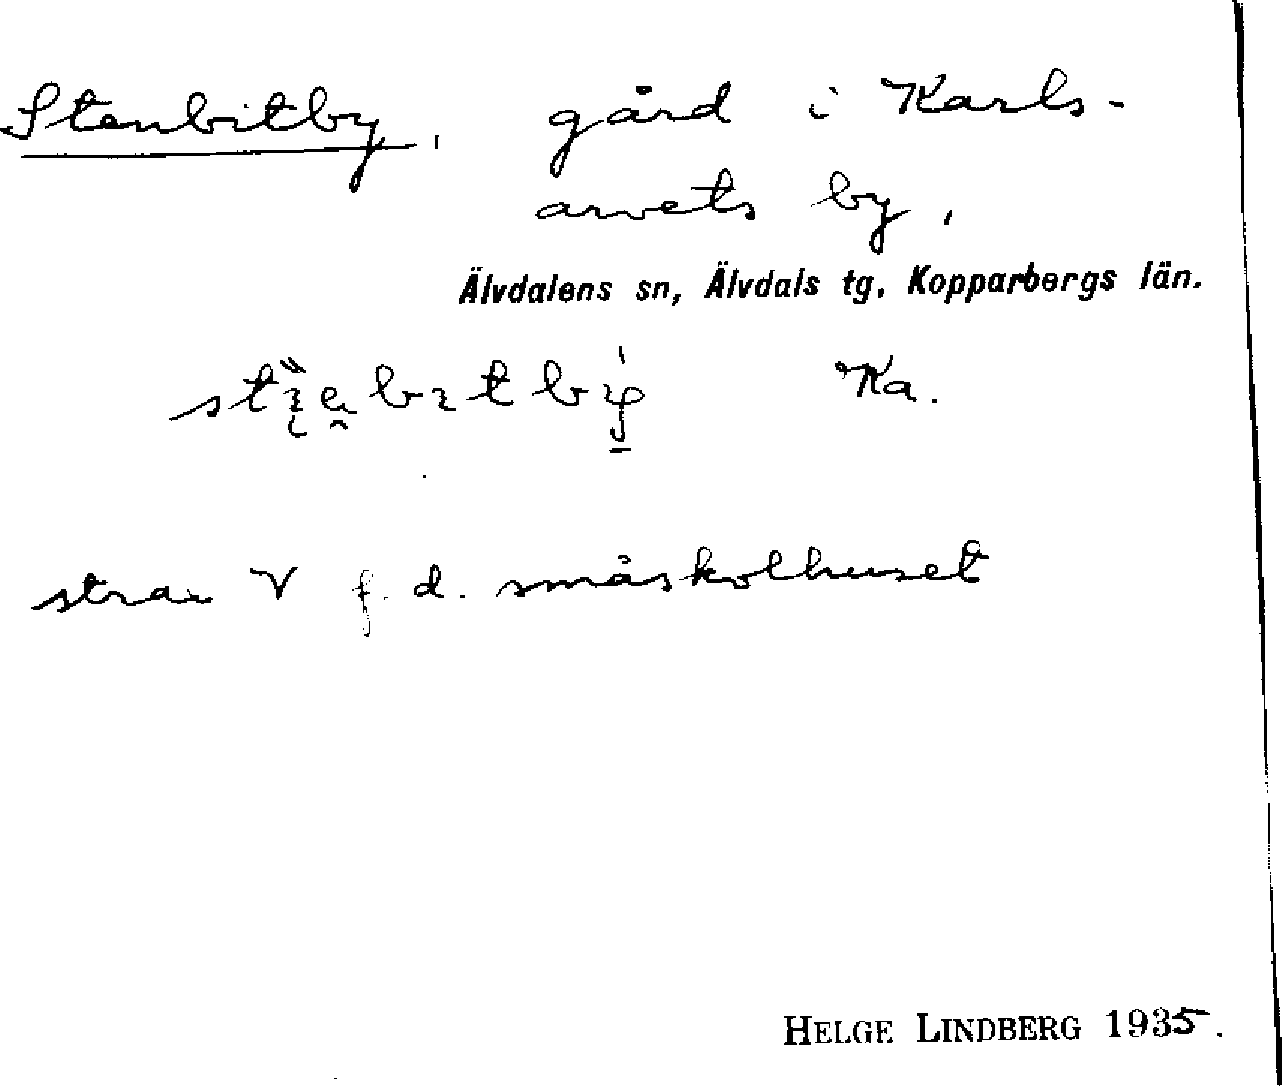 Stenbitby, gård i Karls-
arvets by,
Älvdalens sn, Älvdals tg, Kopparbergs län.
Ka.
strax V f. d. småskolhuset
HELGE LINDBERG 1935.